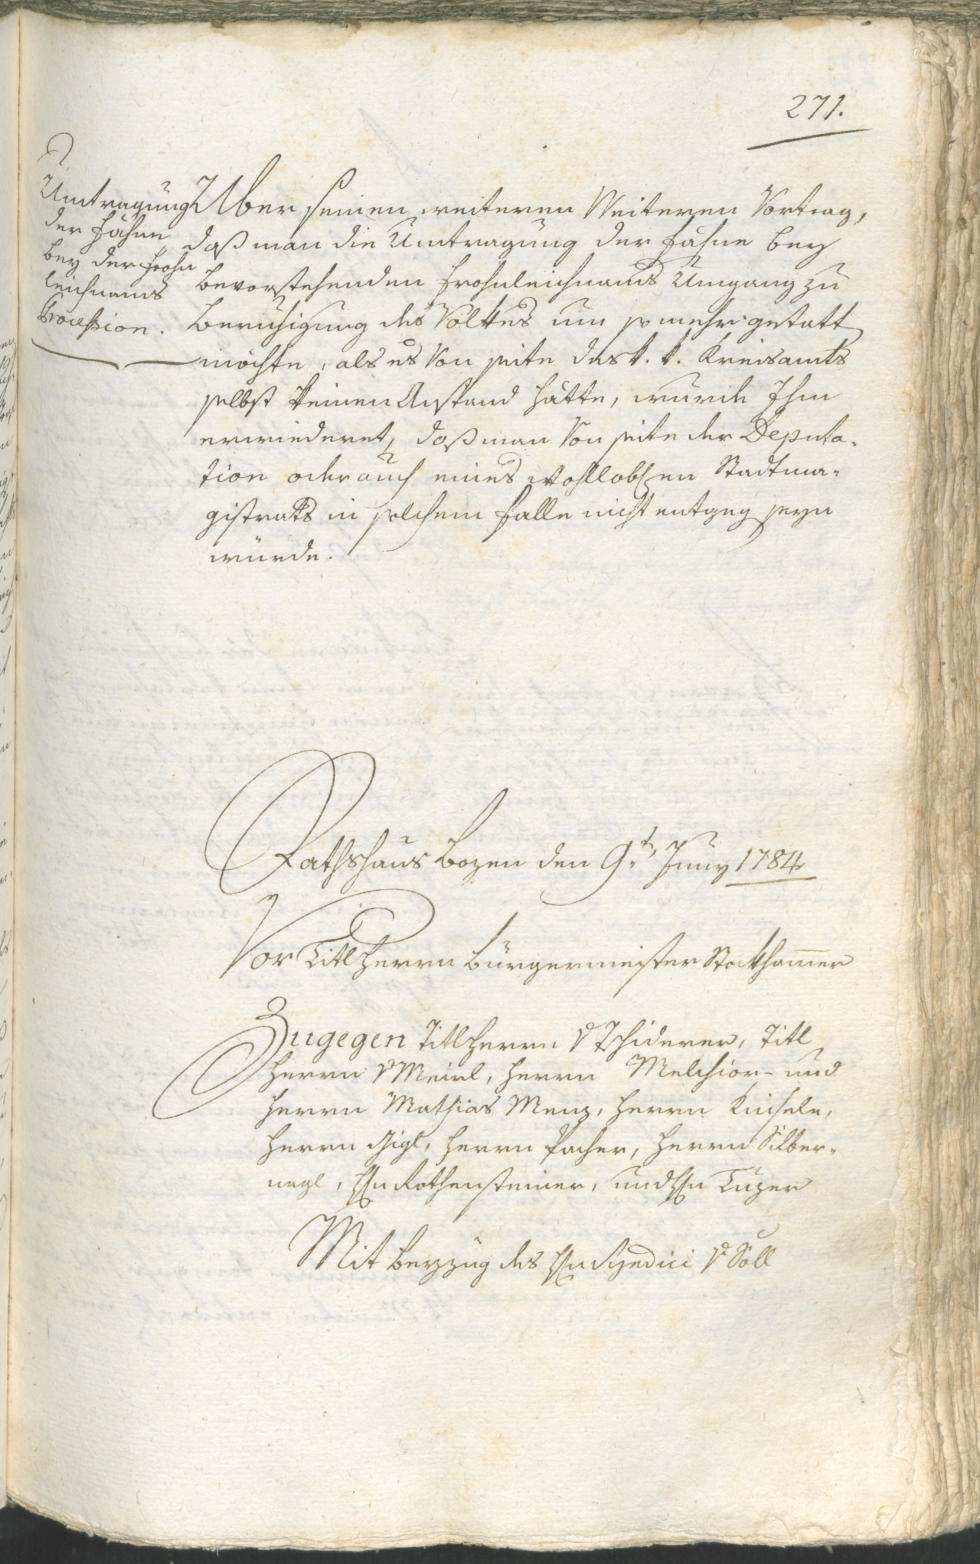 271.
Umtragung
der Fahne
bey der Frohn
leichnams
Procession.
Über seinen weiteren Weiteren Vortrag,
daß man die Umtragung der Fahne bey
bevorstehenden Frohnleichnams Umgang zu
Beruhigung des Volkes um so mehr gestatt
möchte, als es Von seite des k. k. Kreisamts
selbst keinen Anstand hätte, wurde Ihm
erwiederet, daß man Von seite der Deputa-
tion oder auch eines Wohlloben Stadtma-
gistrats in solchem Falle nicht entgeg seyn
würde.
Rathshaus Bozen den 9.t Juny 1784
Vor Titl Herrn Bürgermeister Stockhamer
Zugegen Titl Herrn v Tschiderer, Titl
Herrn v Meirl, Herrn Melchior- und
Herrn Mathias Menz, Herrn Kuisele,
Herrn Gigl, Herrn Pacher, Herrn Silber-
nagl, Hn Rothensteiner, und Hn Tuzer
Mit Beyzug des Hn Syndici v Söll